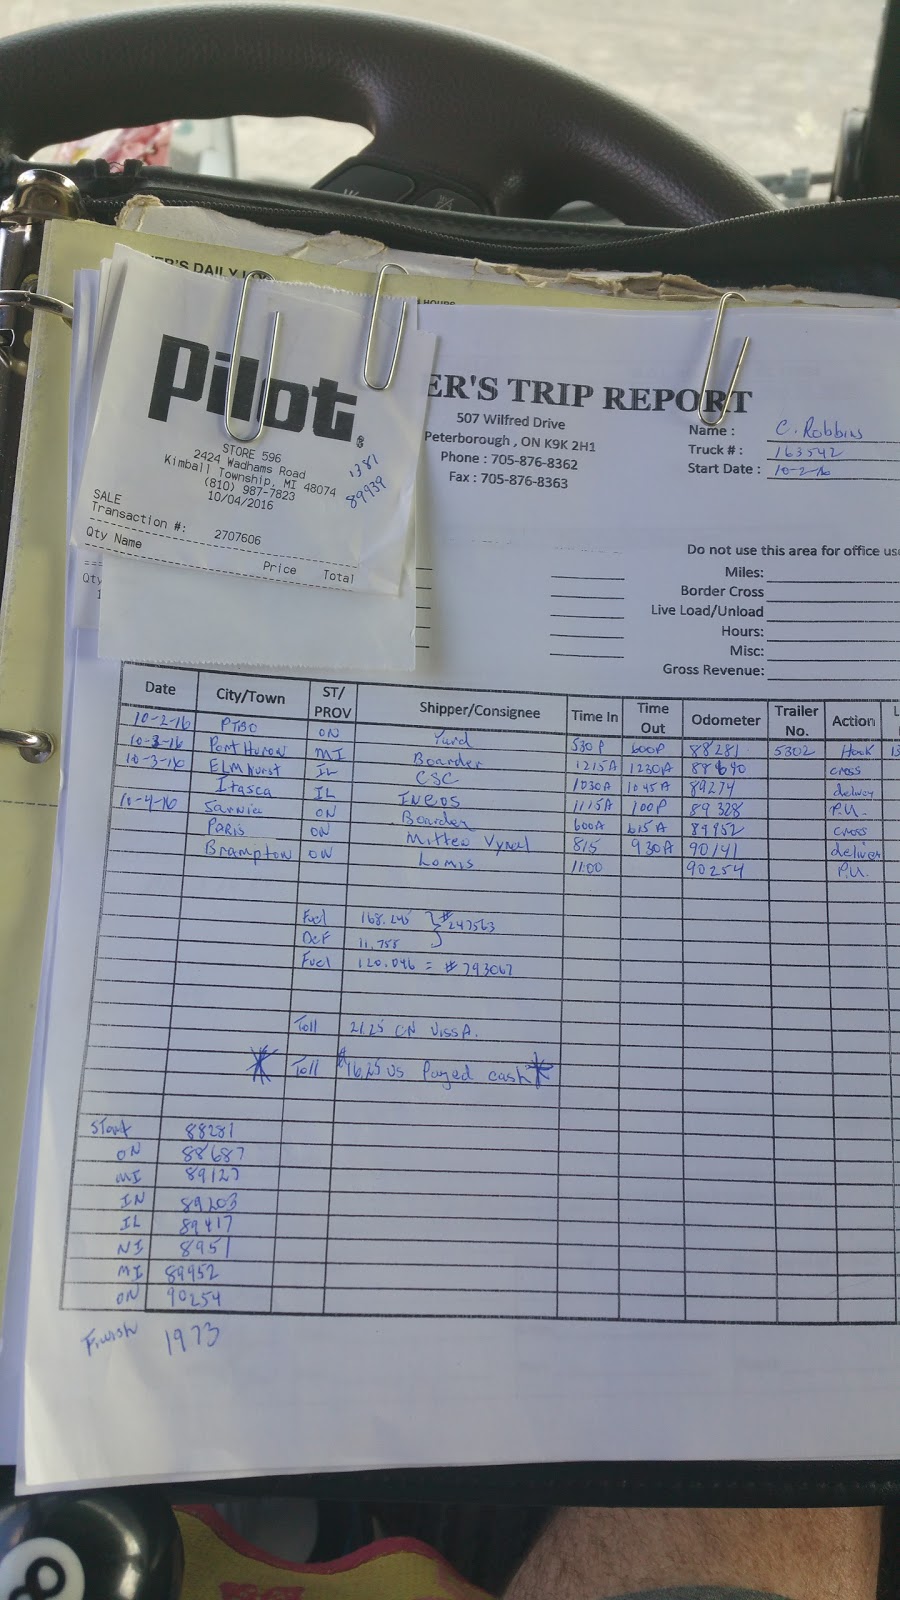 ER'S DAILY LO
HOURS
Pilot
STORE 596
2424 Wadhams Road
Kimball Township, MI 48074
(810) 987-7823
10/04/2016
1381
89939
SALE
Transaction #: 2707606
Qty Name Price Total
Qty
ER'S TRIP REPORT
507 Wilfred Drive
Peterborough , ON K9K 2H1
Phone : 705-876-8362
Fax : 705-876-8363
Name : C. Robbins
Truck # : 163542
Start Date : 10-2-16
Do not use this area for office us
Miles:
Border Cross
Live Load/Unload
Hours:
Misc:
Gross Revenue:
Date City/Town ST/PROV Shipper/Consignee Time In Time Out Odometer Trailer No. Action L
10-2-16 PTBO ON Yard 530P 600P 88281 5302 Hook 13
10-3-16 Port Huron MI Boarder 1215A 1230A 88690 cross
10-3-16 ELMHurst IL CSC 1030A 1045A 89274 delivery
Itasca IL INEOS 1115A 100P 89328 P.U.
10-4-16 Sarnia ON Boarder 600A 615A 89952 cross
PARIS ON Mitten Vynal 815 930A 90141 deliver
Brampton ON Lomis 11:00 90254 P.U.
Fuel 168.245 } # 247563
DEF 11.755
Fuel 120.046 = # 793067
Toll 21.25 CN VISSA.
* Toll $16.25 US Payed cash *
Start 88281
ON 88687
MI 89127
IN 89203
IL 89417
NI 8951
MI 89952
ON 90254
Finish 1973
8